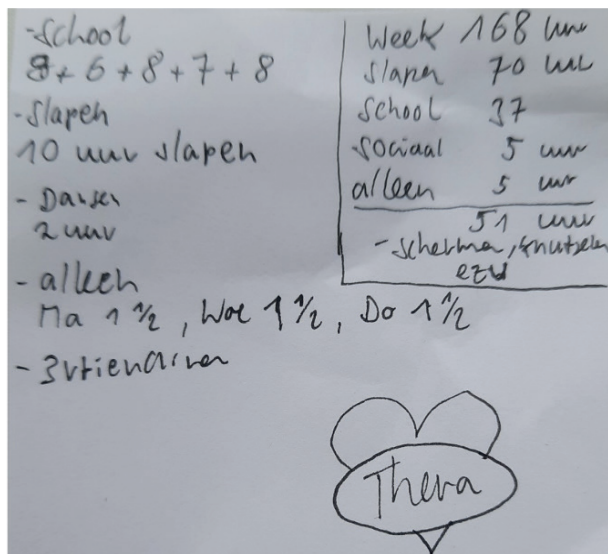 -School
8+6+8+7+8
-Slapen
10 uur slapen
- Dansen
2 uur
- alleen
Ma 1 1/2, Woe 1 1/2, Do 1 1/2
- 3vriendinnen
Week 168 uur
slapen 70 uur
school 37
sociaal 5 uur
alleen 5 uur
51 uur
- schermen, knutselen
ezv
Thera